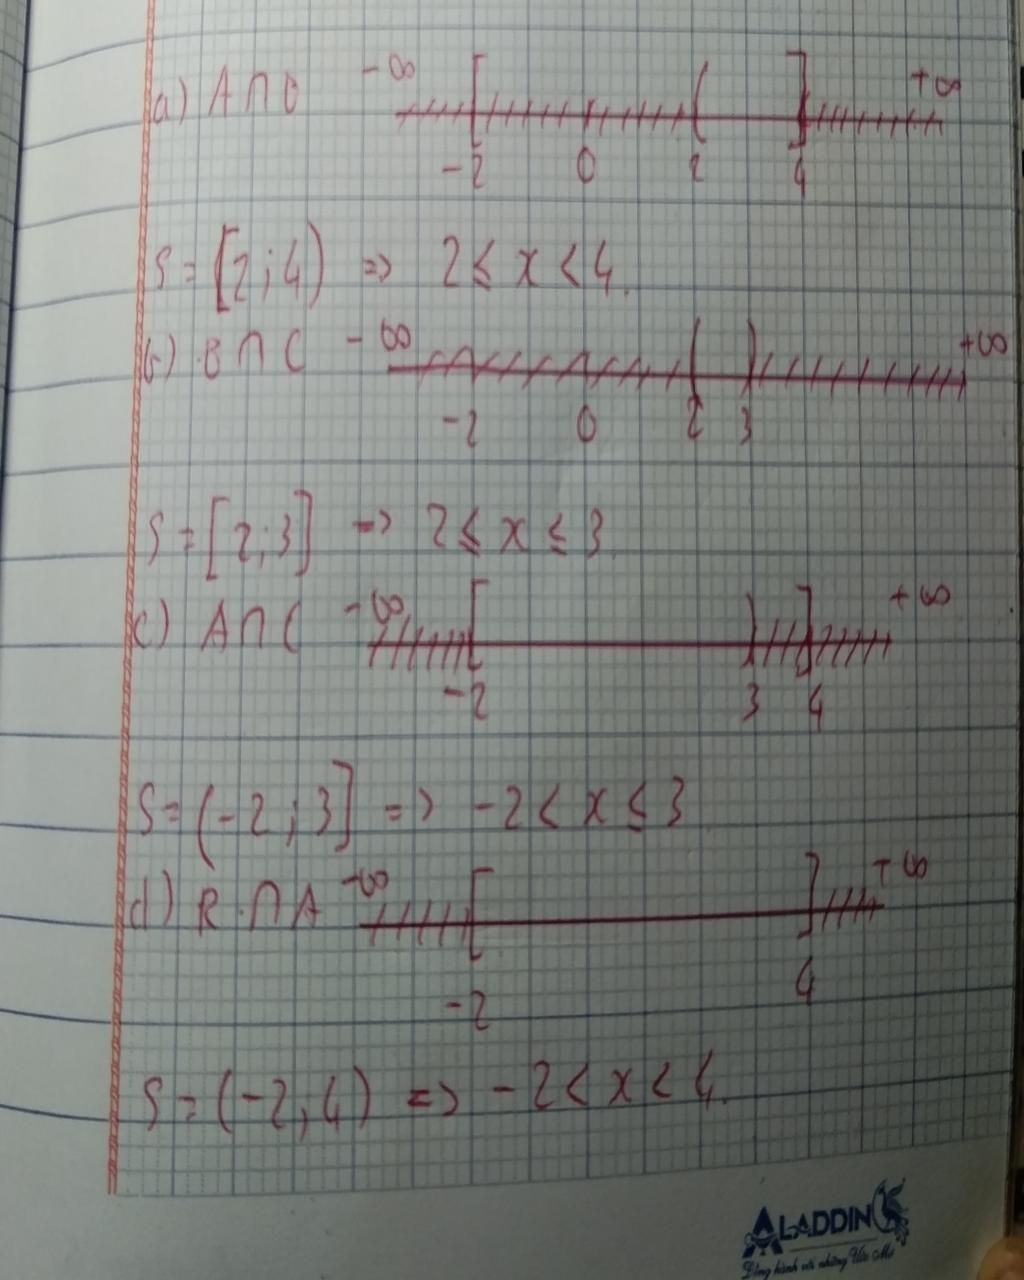 a) A∩B -∞ [ ( ] +∞
-2 0 2 4
S=[2;4) => 2≤x<4.
b) B∩C -∞ ( ) +∞
-2 0 2 3
S=[2;3] => 2≤x≤3.
c) A∩C -∞ [ ) ] +∞
-2 3 4
S=(-2;3] => -2<x≤3
d) R∩A -∞ [ ] +∞
-2 4
S=(-2,4) => -2<x<4.
ALADDIN
Đồng hành với những Ước Mơ